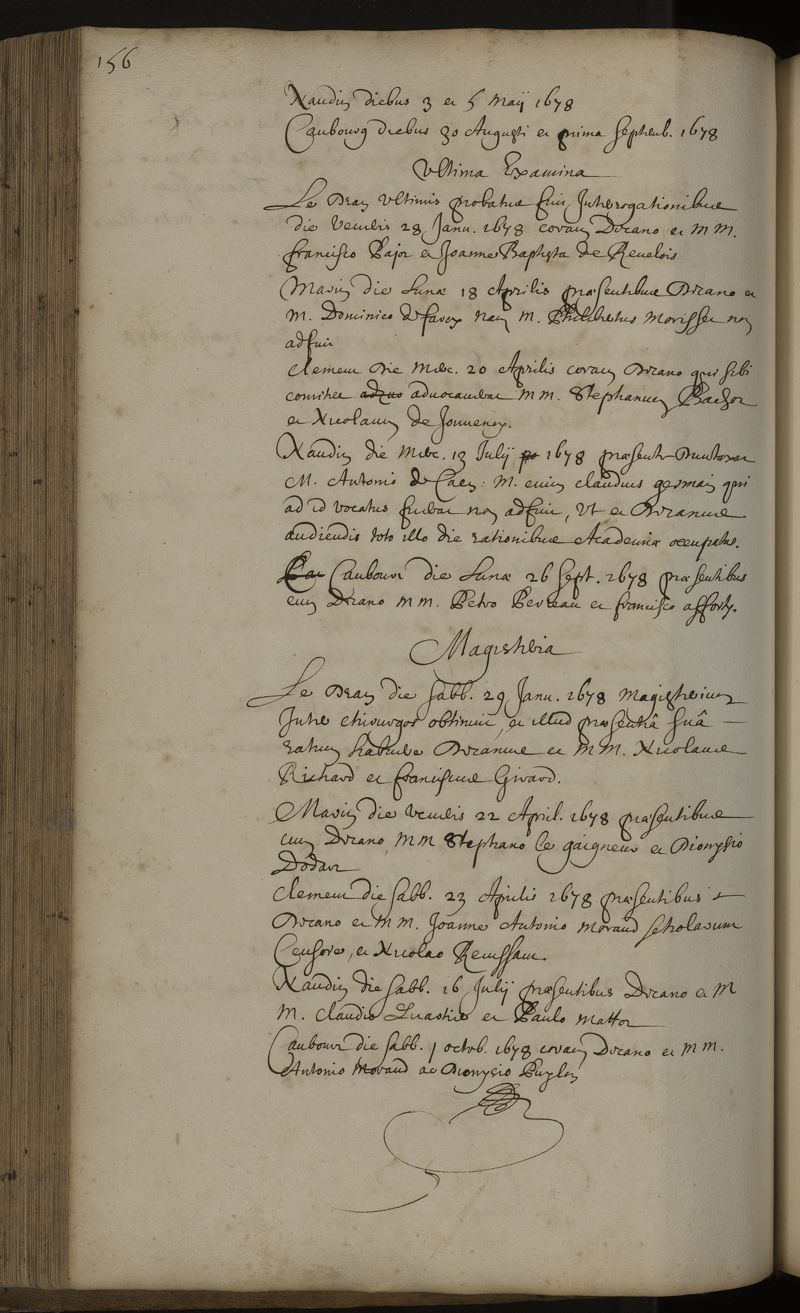 156
Naudin diebus 3 et 5 Maij 1678
Caubourg diebus 30 Augusti et prima Septemb. 1678
Ultima Examina
Le Dran ultimis probatus fuit Interrogationibus
die veneris 28 Janu. 1678 coram Decano et M M.
francisco Pajot et Joanne Baptista de Revelois
Marin die Lunæ 18 Aprilis præsentibus Decano et
M. Dominico Defavex nam M. Philibertus Morisset non
adfuit
Clement Die Merc. 20 Aprilis coram Decano qui sibi
comites advocaverat M M. Stephanum Bachot
et Nicolaum de Jouvency.
Naudin die Merc. 13 Julij 1678 præsente Duntaxat
M. Antonio de Caen: M. enim claudius germain qui
ad id vocatus fuerat non adfuit, ut et Decanus
audiendis toto illo die rationibus Academiæ occupatus.
Caubour die Lunæ 26 Sept. 1678 præsentibus
cum Decano M M. Petro Perreau et francisco afforty.
Magisteria
Le Dran die sabb. 29 Janu. 1678 Magisterium
Inter chirurgos obtinuit, et illud præsentiâ suâ
ratum habuere Decanus et M M. Nicolaus
Richard et franciscus Girard.
Marin die veneris 22 April. 1678 præsentibus
cum Decano, M M Stephano le gaigneur et Dionysio
Dodart
Clement die sabb. 23 Aprilis 1678 præsentibus
Decano et M M. Joanne Antonio Morand scholarum
Censore, et Nicolao
Naudin die sabb. 16 Julij præsentibus Decano et M
M. Claudio et Paulo Mattot
Caubour die sabb. 1 octob. 1678 coram Decano et M M.
Antonio Morand ac Dionysio Puylon